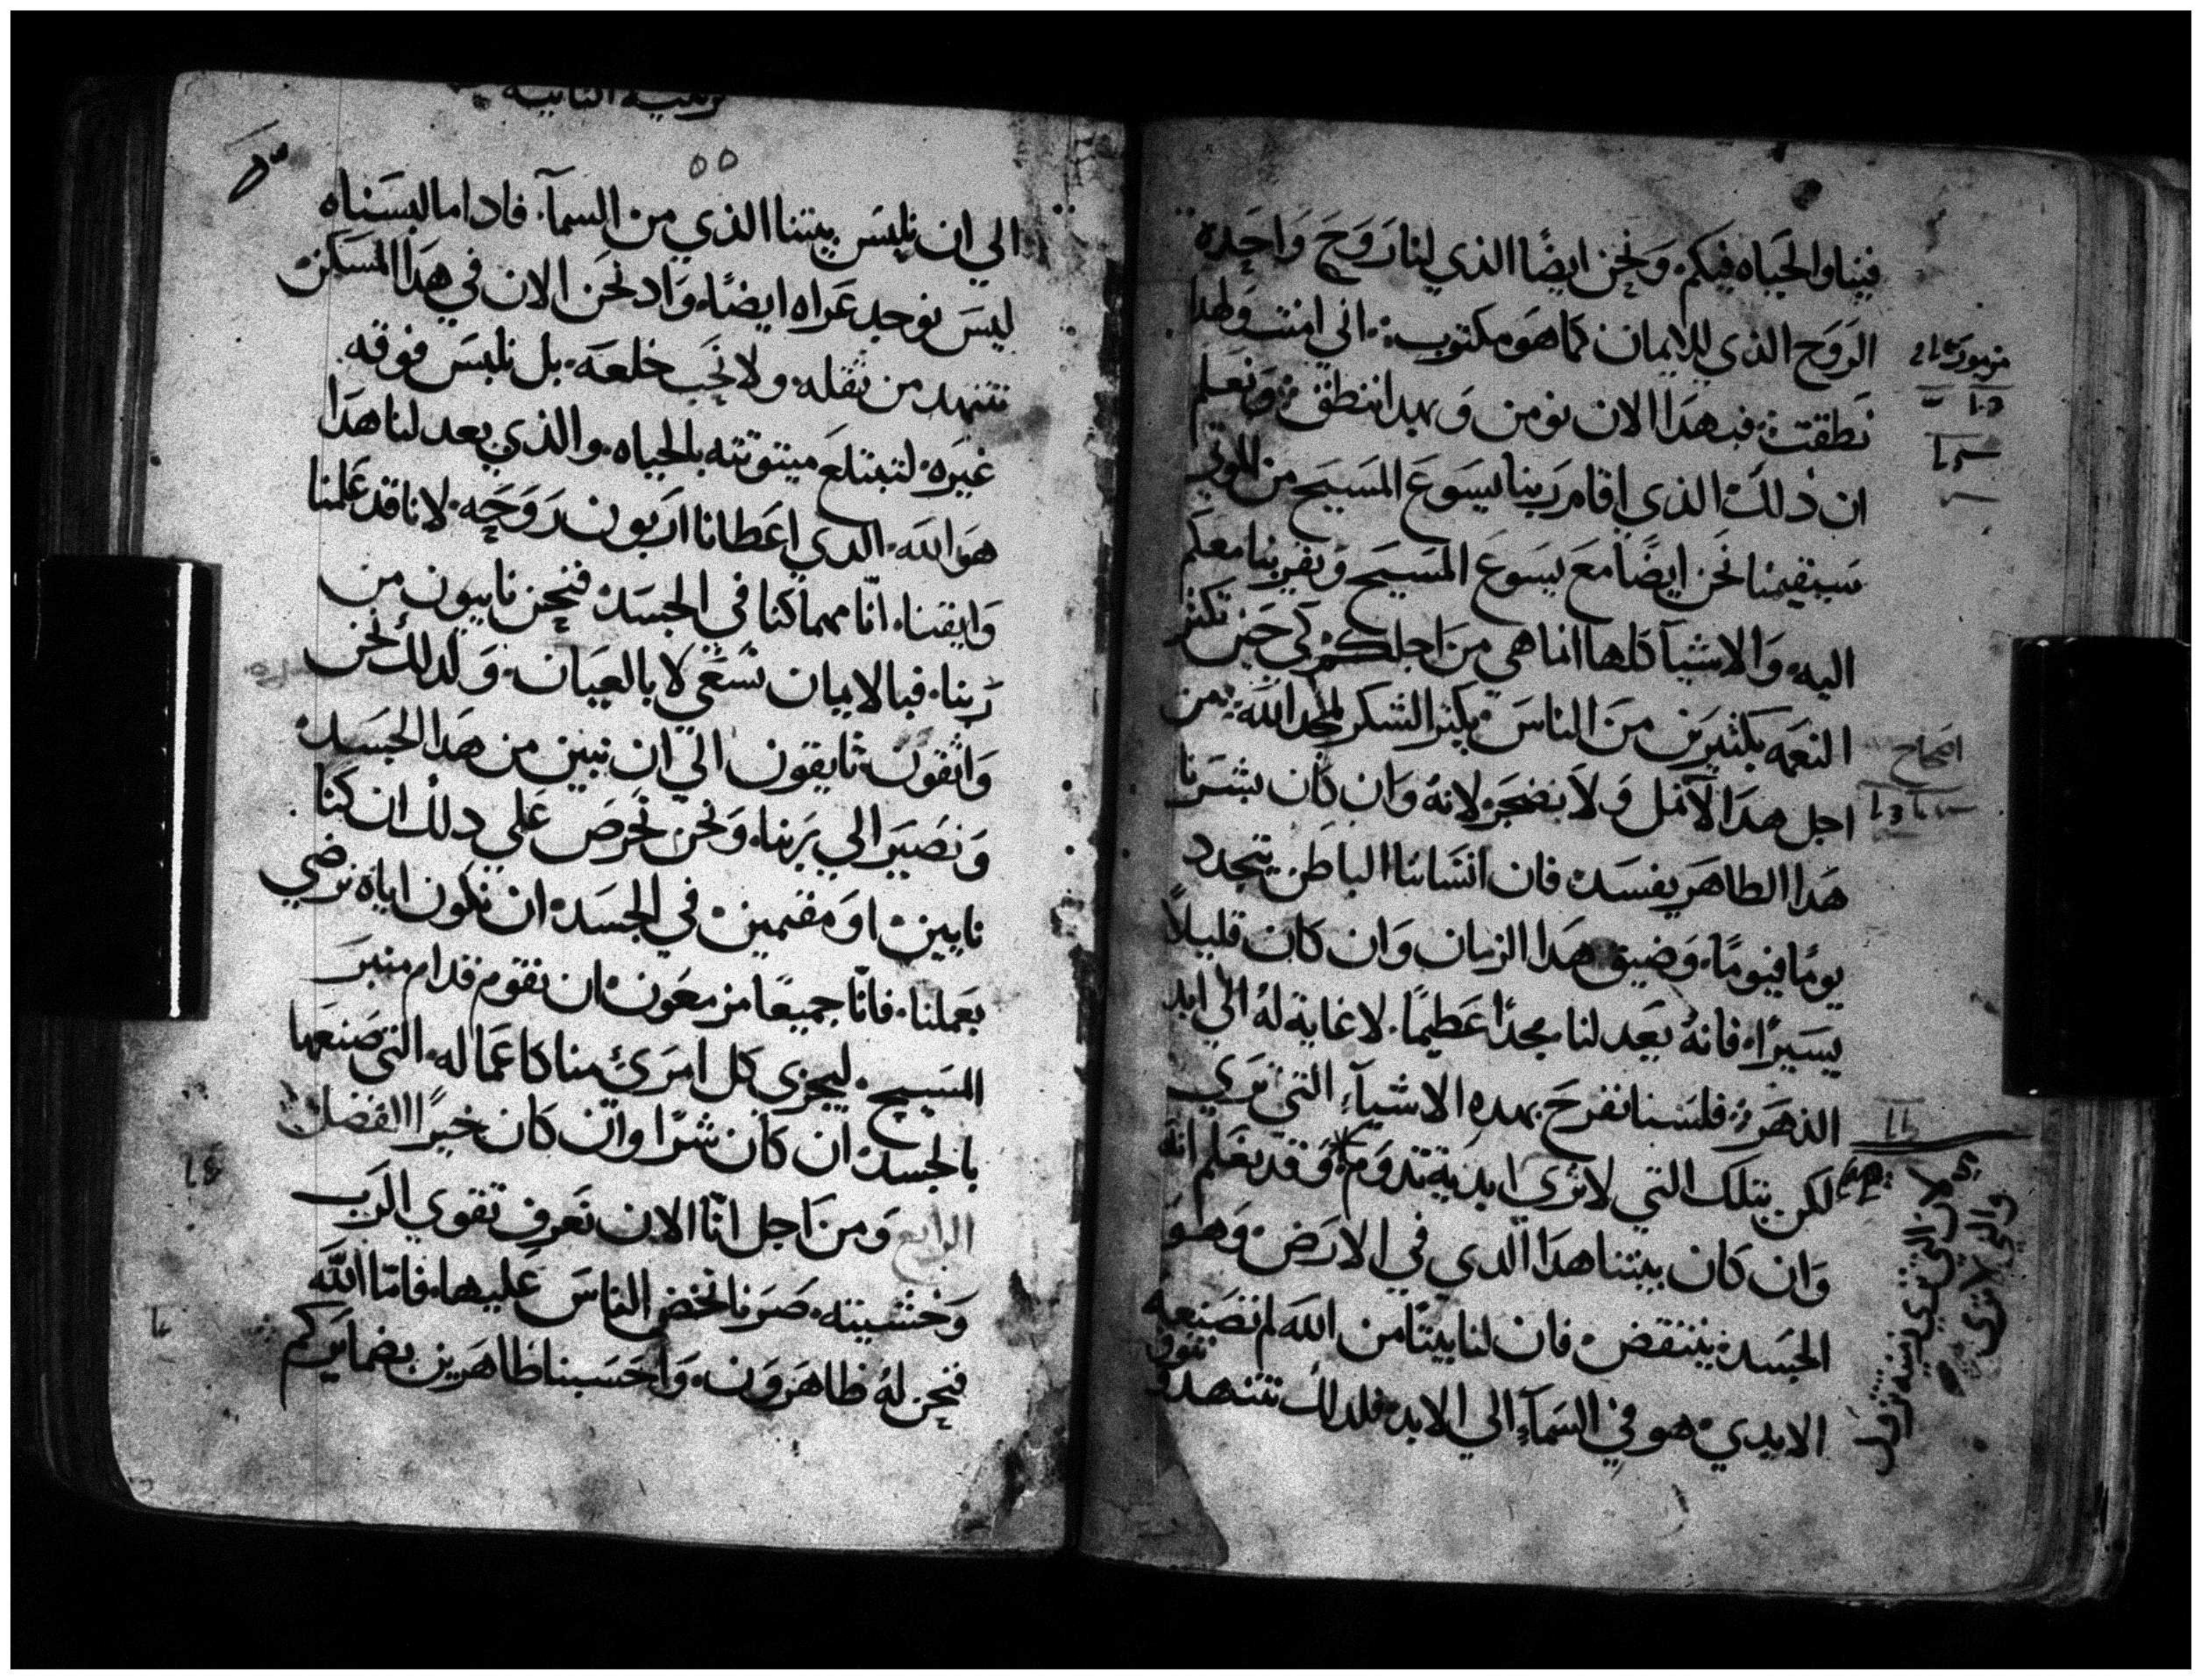 فينا والحياه فيكم. ونحن ايضًا الذي لنا روح واحده
الروح الذي للايمان كما هو مكتوب. اني امنت ولهدا
نطقت. فبهدا الان نومن وبهدا ننطق. ونعلم
ان ذلك الذي اقام ربنا يسوع المسيح من الموتي
سيقيمنا نحن ايضًا مع يسوع المسيح ويقربنا معكم
اليه. والاشيا كلها انما هي من اجلكم كي حين تكثر
النعمه بكثيرين من الناس يكثر الشكر لمجد الله. من
اجل هدا لا نمل ولا نضجر لانه وان كان بشرنا
هدا الظاهر يفسد. فان انساننا الباطن يتجدد
يومًا فيومًا. وضيق هدا الزمان وان كان قليلاً
يسيرًا. فانه يعد لنا مجدًا عظيمًا. لا غاية له الي ابد
الدهر. فلسنا نفرح بهده الاشيآء التي تري
لكن بتلك التي لا تري ابدية تدوم وقد نعلم انه
وان كان بيتنا هدا الدي في الارض وهو
الجسد ينتقض. فان لنا بيتًا من الله لم تصنعه
الايدي. هو في السمآء الي الابد. فلدلك نتنهد ونتوق
اصحاح
لان التي تري زمنيه تزول
والتي لا تري
٥٥
الي ان نلبس بيتنا الذي من السمآ. فادا ما لبسناه
ليس نوجد عراه ايضًا. واد نحن الان في هدا المسكن
نتنهد من ثقله. ولا نحب خلعه. بل نلبس فوقه
غيره. لتبتلع ميتوتته بالحياه. والذي يعد لنا هدا
هو الله. الدي اعطانا اربون روحه. لانا قد علمنا
وايقنا. انّا مهما كنا في الجسد. فنحن نايبون من
ربنا. فبالايمان نسعي لا بالعيان. ولدلك نحن
واثقون. تايقون الي ان نبين من هدا الجسد
ونصير الي ربنا. ونحن نحرص علي دلك ان كنا
نايين او مقيمين في الجسد. ان نكون اياه نرضي
بعملنا. فانّا جميعًا مزمعون ان نقوم قدام منبر
المسيح. ليجزي كل امرئ منا كاعماله. التي صنعها
بالجسد. ان كان شرًا وان كان خيرًا الفصل
الرابع ومن اجل انّا الان نعرف تقوي الرب
وخشيته. صرنا نحض الناس عليها. فامّا الله
فنحن له ظاهرون. واحسبنا ظاهرين بضمايركم